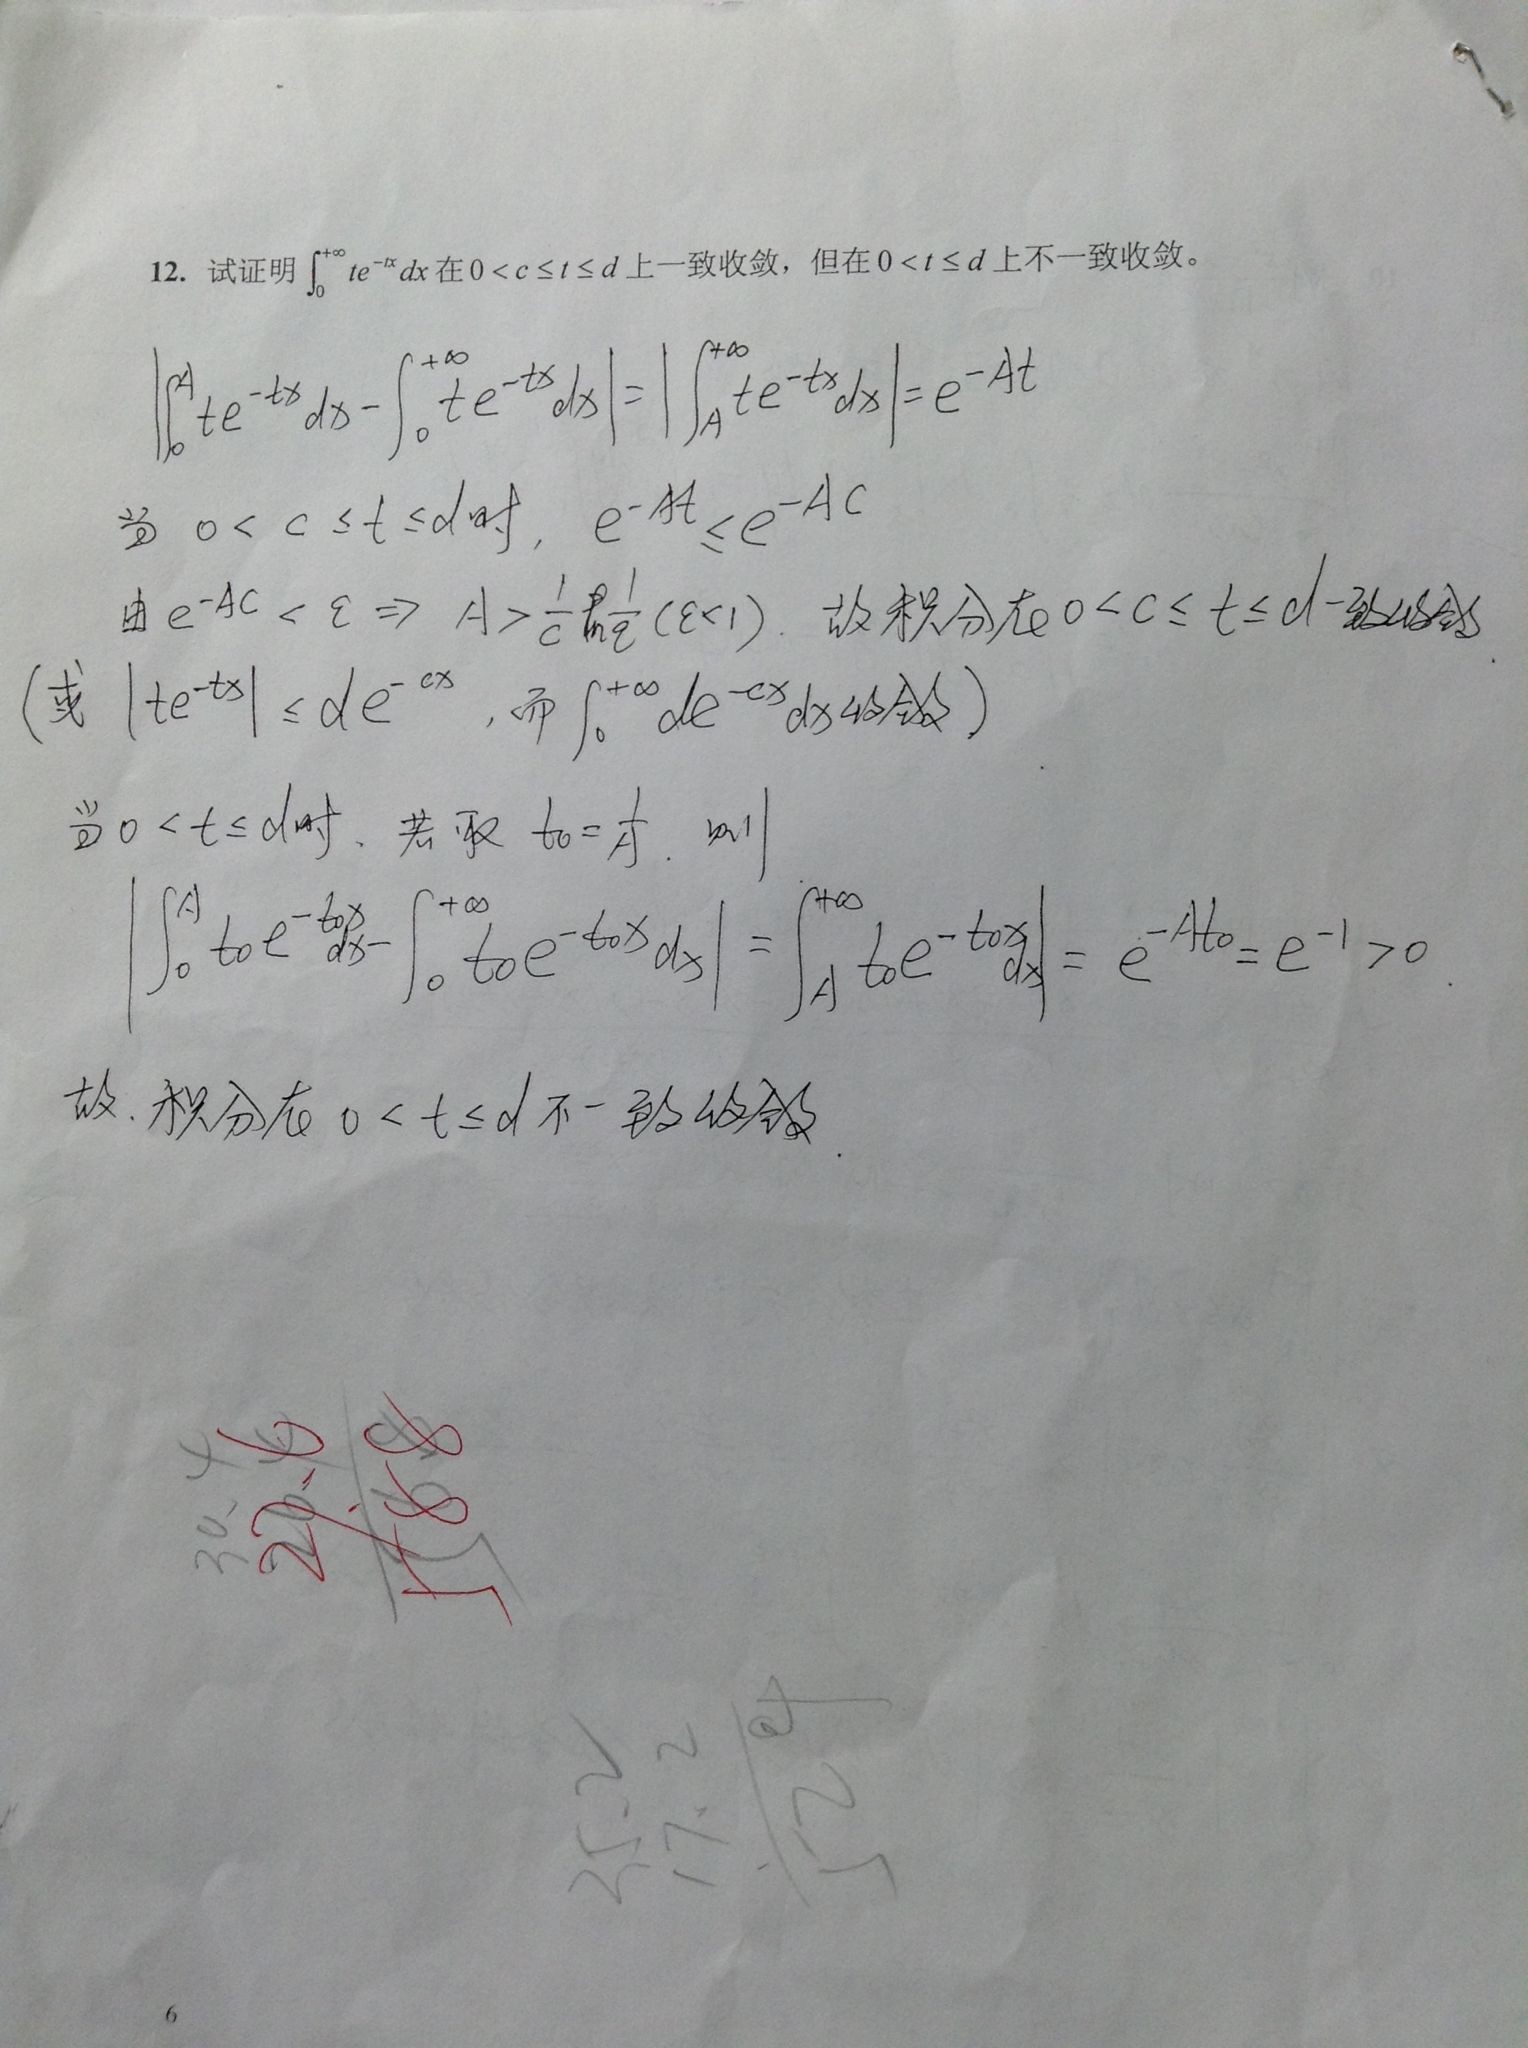 12. 试证明 ∫₀^{+∞} te^{-tx} dx 在 0 < c ≤ t ≤ d 上一致收敛，但在 0 < t ≤ d 上不一致收敛。
|∫₀^A te^{-tx} dx - ∫₀^{+∞} te^{-tx} dx| = |∫_A^{+∞} te^{-tx} dx| = e^{-At}
当 0 < c ≤ t ≤ d 时, e^{-At} ≤ e^{-AC}
由 e^{-AC} < ε ⇒ A > 1/c ln 1/ε (ε<1). 故积分在 0 < c ≤ t ≤ d 一致收敛.
(或 |te^{-tx}| ≤ de^{-cx}, 而 ∫₀^{+∞} de^{-cx} dx 收敛)
当 0 < t ≤ d 时. 若取 t₀ = 1/A. 则
|∫₀^A t₀e^{-t₀x} dx - ∫₀^{+∞} t₀e^{-t₀x} dx| = ∫_A^{+∞} t₀e^{-t₀x} dx| = e^{-At₀} = e^{-1} > 0.
故. 积分在 0 < t ≤ d 不一致收敛.
35.2
17.2
52
6